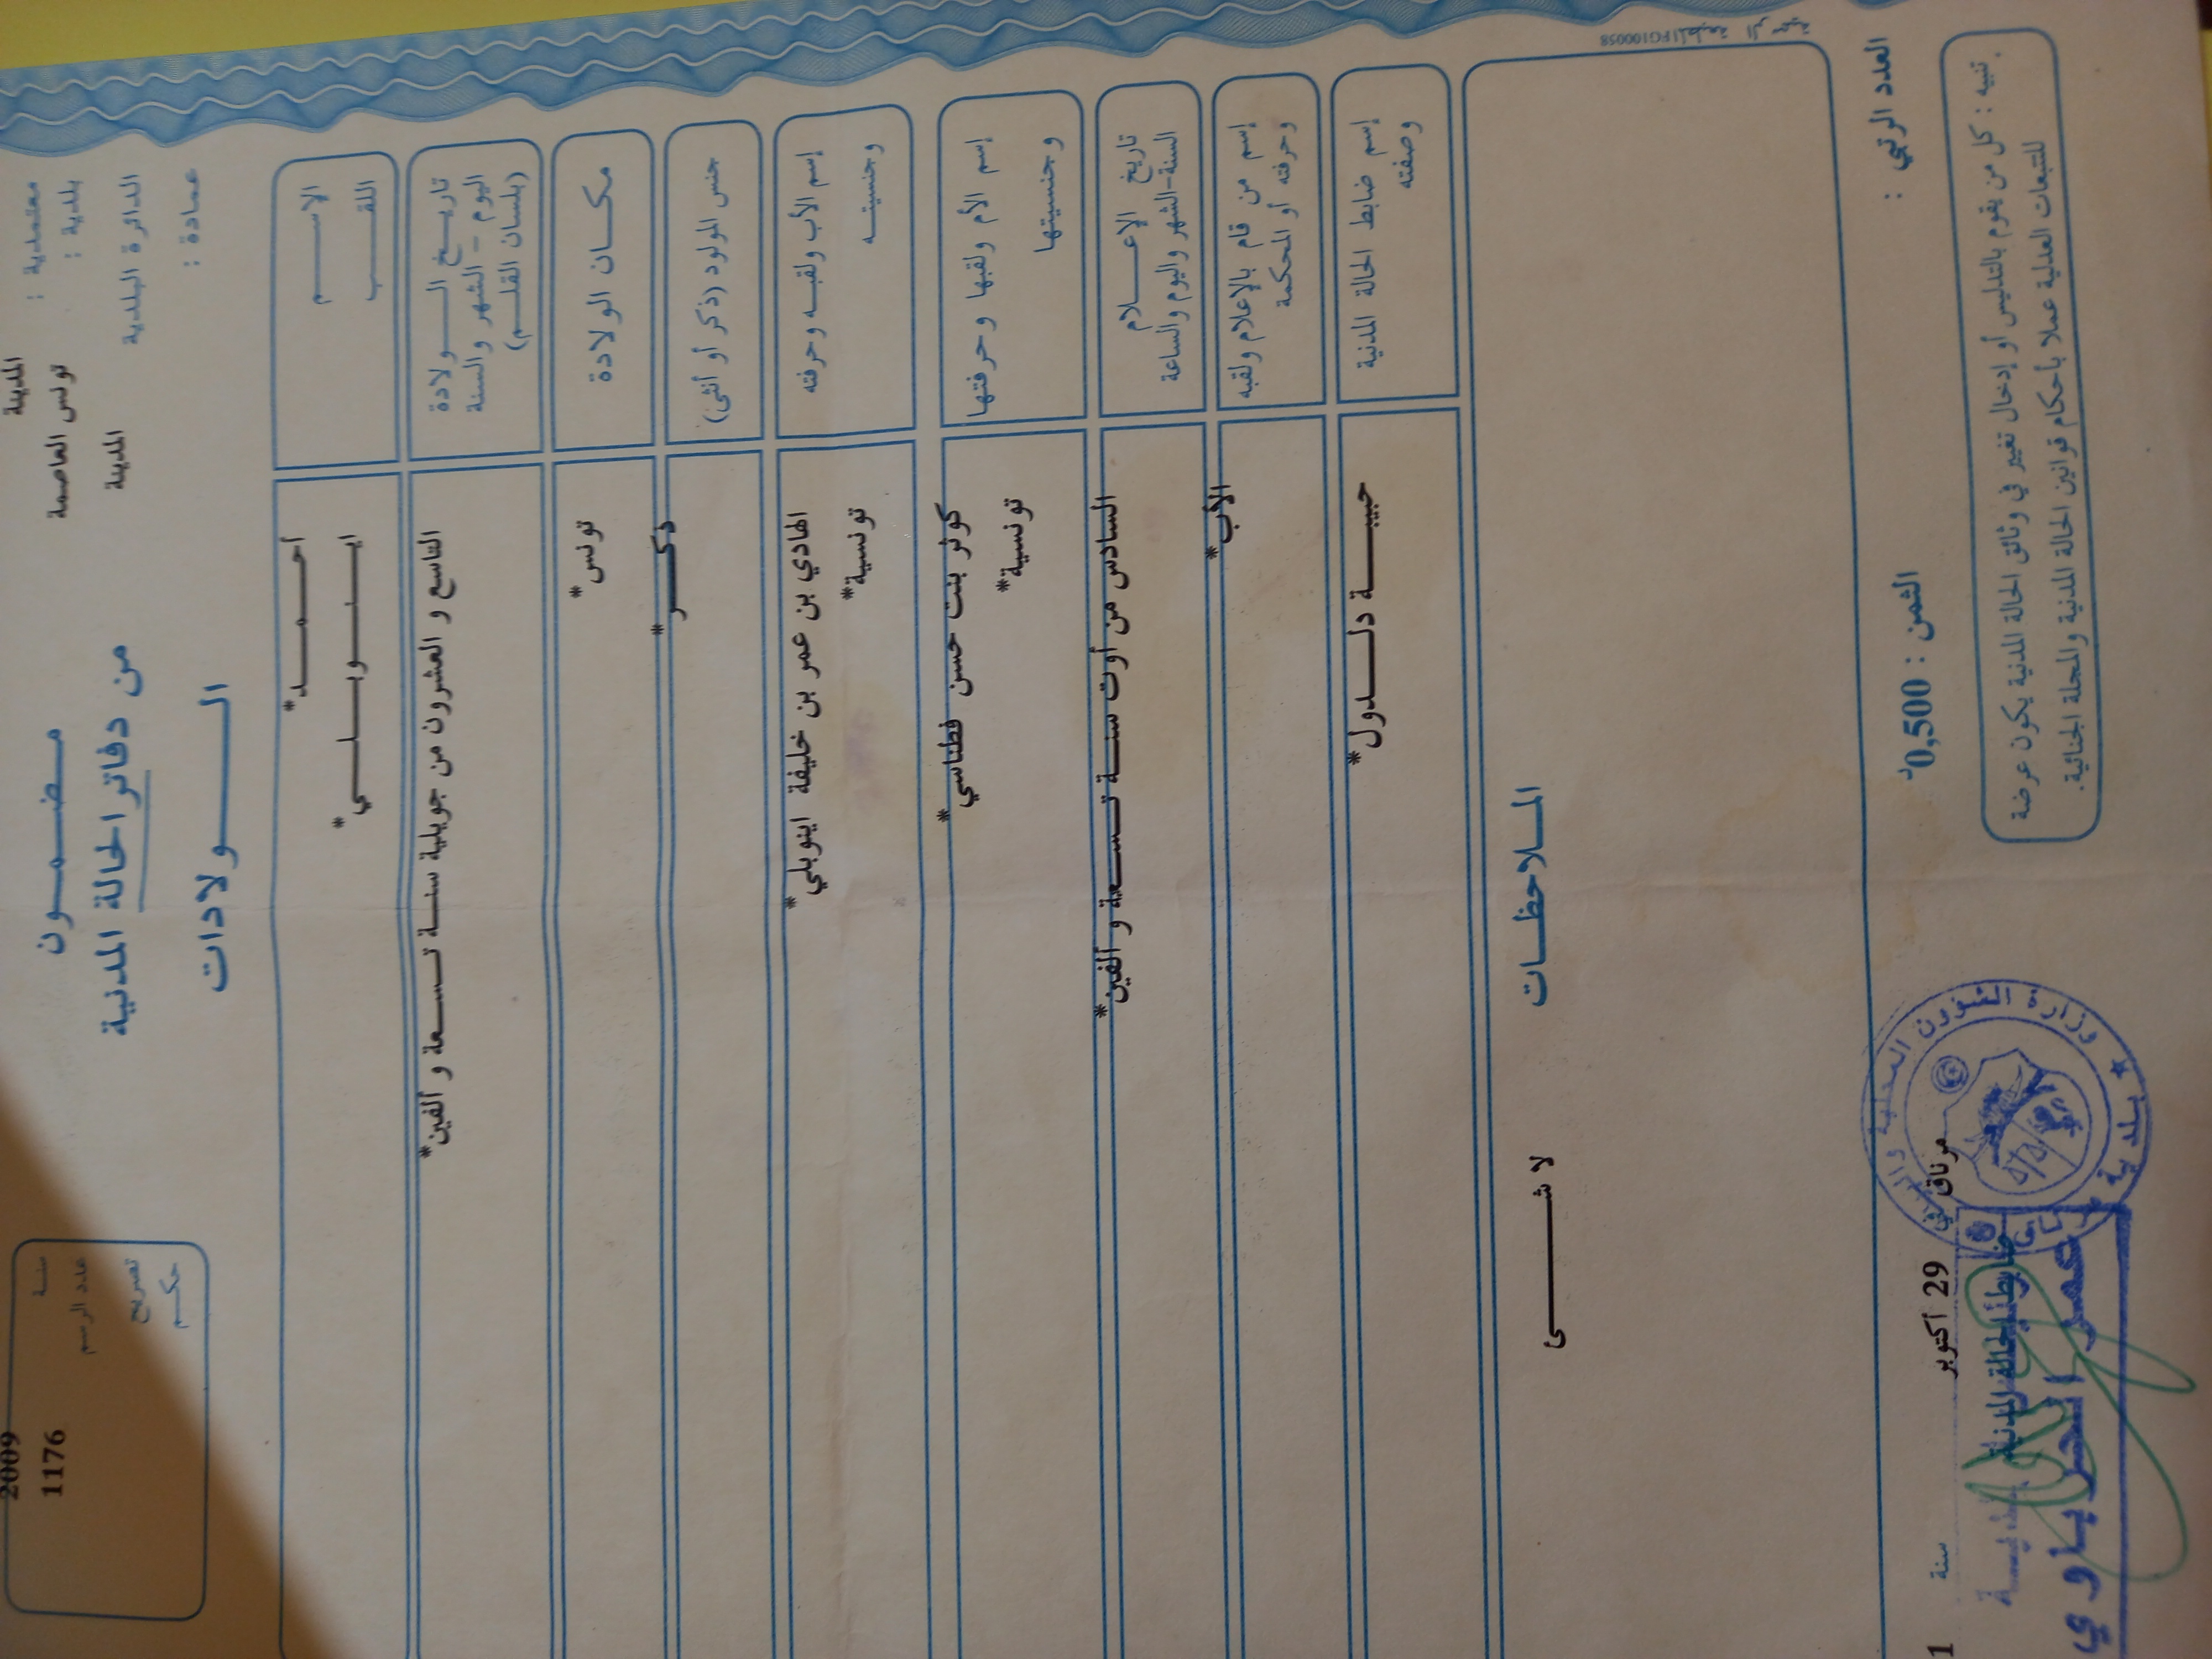 معتمدية : المدينة
بلدية : تونس العاصمة
الدائرة البلدية المدينة
عمادة :
مضمون
من دفاتر الحالة المدنية
الولادات
2009
سنة
1176
عدد الرسم
تصريح
حكم
الاسم أحمد*
اللقب اينوبلي*
تاريخ الولادة
اليوم - الشهر والسنة
(بلسان القلم)
التاسع و العشرون من جويلية سنة تسعة و ألفين*
مكان الولادة تونس*
جنس المولود (ذكر أو أنثى) ذكر*
إسم الأب ولقبه وحرفته الهادي بن عمر بن خليفة اينوبلي*
وجنسيته تونسية*
إسم الأم ولقبها وحرفتها كوثر بنت حسن فطناسي*
وجنسيتها تونسية*
تاريخ الإعلام
السنة-الشهر واليوم والساعة
السادس من أوت سنة تسعة و ألفين*
إسم من قام بالإعلام ولقبه
وحرفته أو المحكمة
الأب*
إسم ضابط الحالة المدنية
وصفته
حبيبة دلدول*
الملاحظات
لا شئ
FG100058
العدد الرتبي :
الثمن : 0,500د
مرناق في 29 أكتوبر سنة 1
ضابط الحالة المدنية
عمر الحرباوي
وزارة الشؤون المحلية
بلدية
تنبيه : كل من يقوم بالتدليس أو إدخال تغيير في وثائق الحالة المدنية يكون عرضة
للتتبعات العدلية عملا بأحكام قوانين الحالة المدنية والمجلة الجنائية.